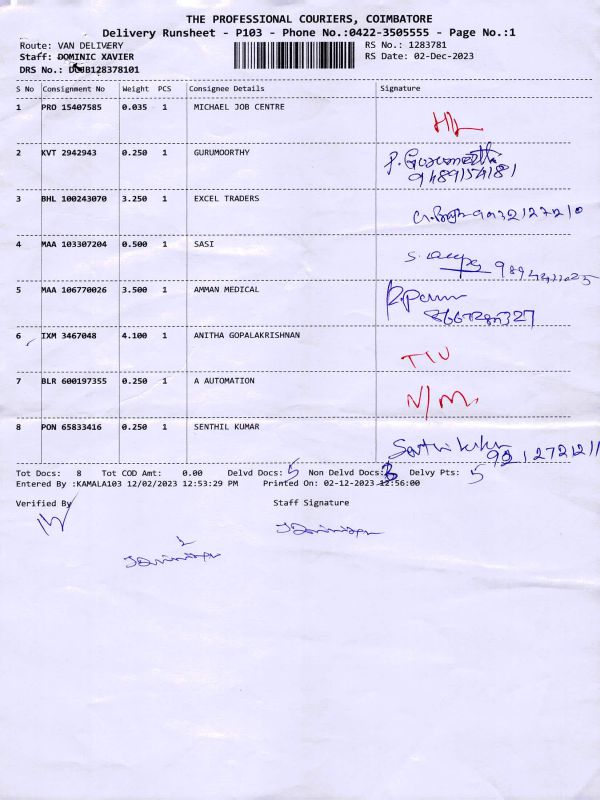 THE PROFESSIONAL COURIERS, COIMBATORE
Delivery Runsheet - P103 - Phone No.:0422-3505555 - Page No.:1
Route: VAN DELIVERY RS No.: 1283781
Staff: DOMINIC XAVIER RS Date: 02-Dec-2023
DRS No.: DCJB128378101
S No Consignment No Weight PCS Consignee Details Signature
1 PRO 15407585 0.035 1 MICHAEL JOB CENTRE
2 KVT 2942943 0.250 1 GURUMOORTHY
9489154181
3 BHL 100243070 3.250 1 EXCEL TRADERS
4 MAA 103307204 0.500 1 SASI
5 MAA 106770026 3.500 1 AMMAN MEDICAL
6 IXM 3467048 4.100 1 ANITHA GOPALAKRISHNAN
7 BLR 600197355 0.250 1 A AUTOMATION N/M.
8 PON 65833416 0.250 1 SENTHIL KUMAR
Tot Docs: 8 Tot COD Amt: 0.00 Delvd Docs: 5 Non Delvd Docs: 3 Delvy Pts: 5
Entered By :KAMALA103 12/02/2023 12:53:29 PM Printed On: 02-12-2023 12:56:00
Verified By Staff Signature